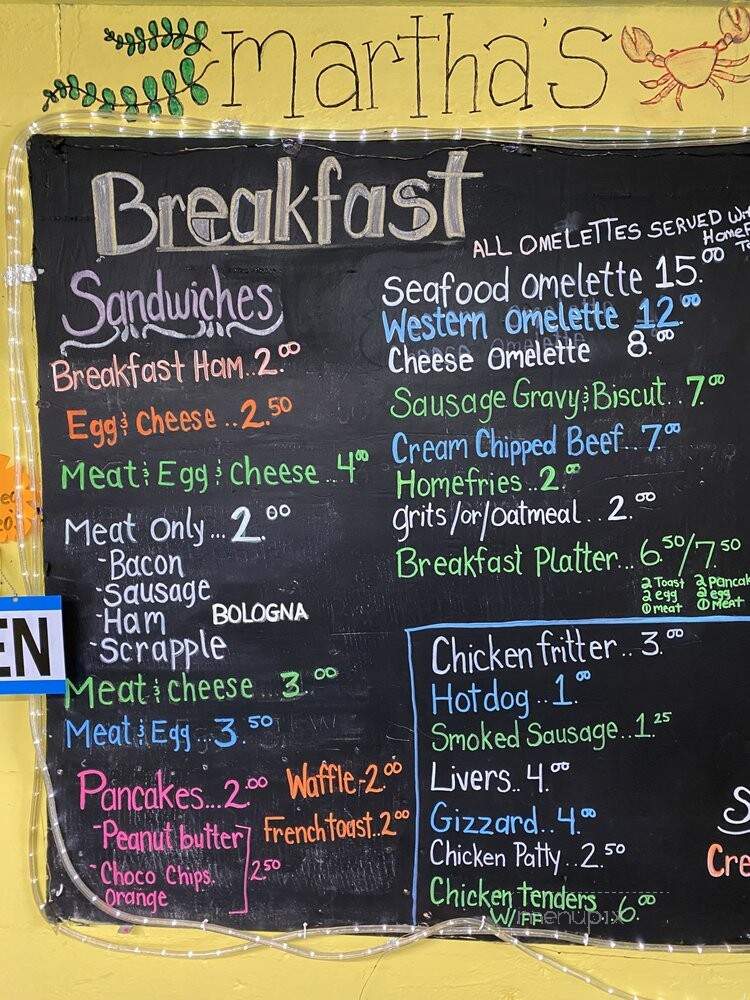 Martha's
Breakfast
Sandwiches
Breakfast Ham..2.00
Egg & Cheese ..2.50
Meat & Egg & Cheese ..4.00
Meat Only...2.00
-Bacon
-Sausage
-Ham BOLOGNA
-Scrapple
Meat & cheese ...3.00
Meat & Egg...3.50
Pancakes...2.00
-Peanut butter
-Choco Chips.
Orange
2.50
Waffle-2.00
French toast..2.00
ALL OMELETTES SERVED
Seafood Omelette 15.00
Western Omelette 12.00
Cheese Omelette 8.00
Sausage Gravy & Biscut..7.00
Cream Chipped Beef..7.00
Homefries..2.00
grits/or/oatmeal..2.00
Breakfast Platter...6.50/7.50
2 Toast
2 egg
1 meat
2 Pancak
2 egg
1 Meat
Chicken fritter..3.00
Hotdog..1.00
Smoked Sausage..1.25
Livers..4.00
Gizzard..4.00
Chicken Patty..2.50
Chicken tenders
6.00
menupix
EN
Cre